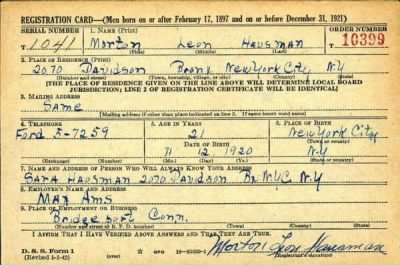 REGISTRATION CARD—(Men born on or after February 17, 1897 and on or before December 31, 1921)
SERIAL NUMBER 1. NAME (Print) ORDER NUMBER
T 1041 Morton Leon Hausman 16399
(First) (Middle) (Last)
2. PLACE OF RESIDENCE (Print)
2070 Davidson Bronx New York City N.Y
(Number and street) (Town, township, village, or city) (County) (State)
[THE PLACE OF RESIDENCE GIVEN ON THE LINE ABOVE WILL DETERMINE LOCAL BOARD
JURISDICTION; LINE 2 OF REGISTRATION CERTIFICATE WILL BE IDENTICAL]
3. MAILING ADDRESS
Same
(Mailing address if other than place indicated on line 2. If same insert word same)
4. TELEPHONE 5. AGE IN YEARS 6. PLACE OF BIRTH
Ford 5-7259 21 New York City
DATE OF BIRTH (Town or county)
12 1920 N.Y
(Exchange) (Number) (Mo.) (Day) (Yr.) (State or country)
7. NAME AND ADDRESS OF PERSON WHO WILL ALWAYS KNOW YOUR ADDRESS
Sara Hausman 2070 Davidson Bx NYC N.Y
8. EMPLOYER'S NAME AND ADDRESS
Max Ams
9. PLACE OF EMPLOYMENT OR BUSINESS
Bridgeport Conn.
(Number and street or R. F. D. number) (Town) (County) (State)
I AFFIRM THAT I HAVE VERIFIED ABOVE ANSWERS AND THAT THEY ARE TRUE.
D. S. S. Form 1 Morton Leon Hausman
(Revised 1-3-42) GPO (Registrant's signature)